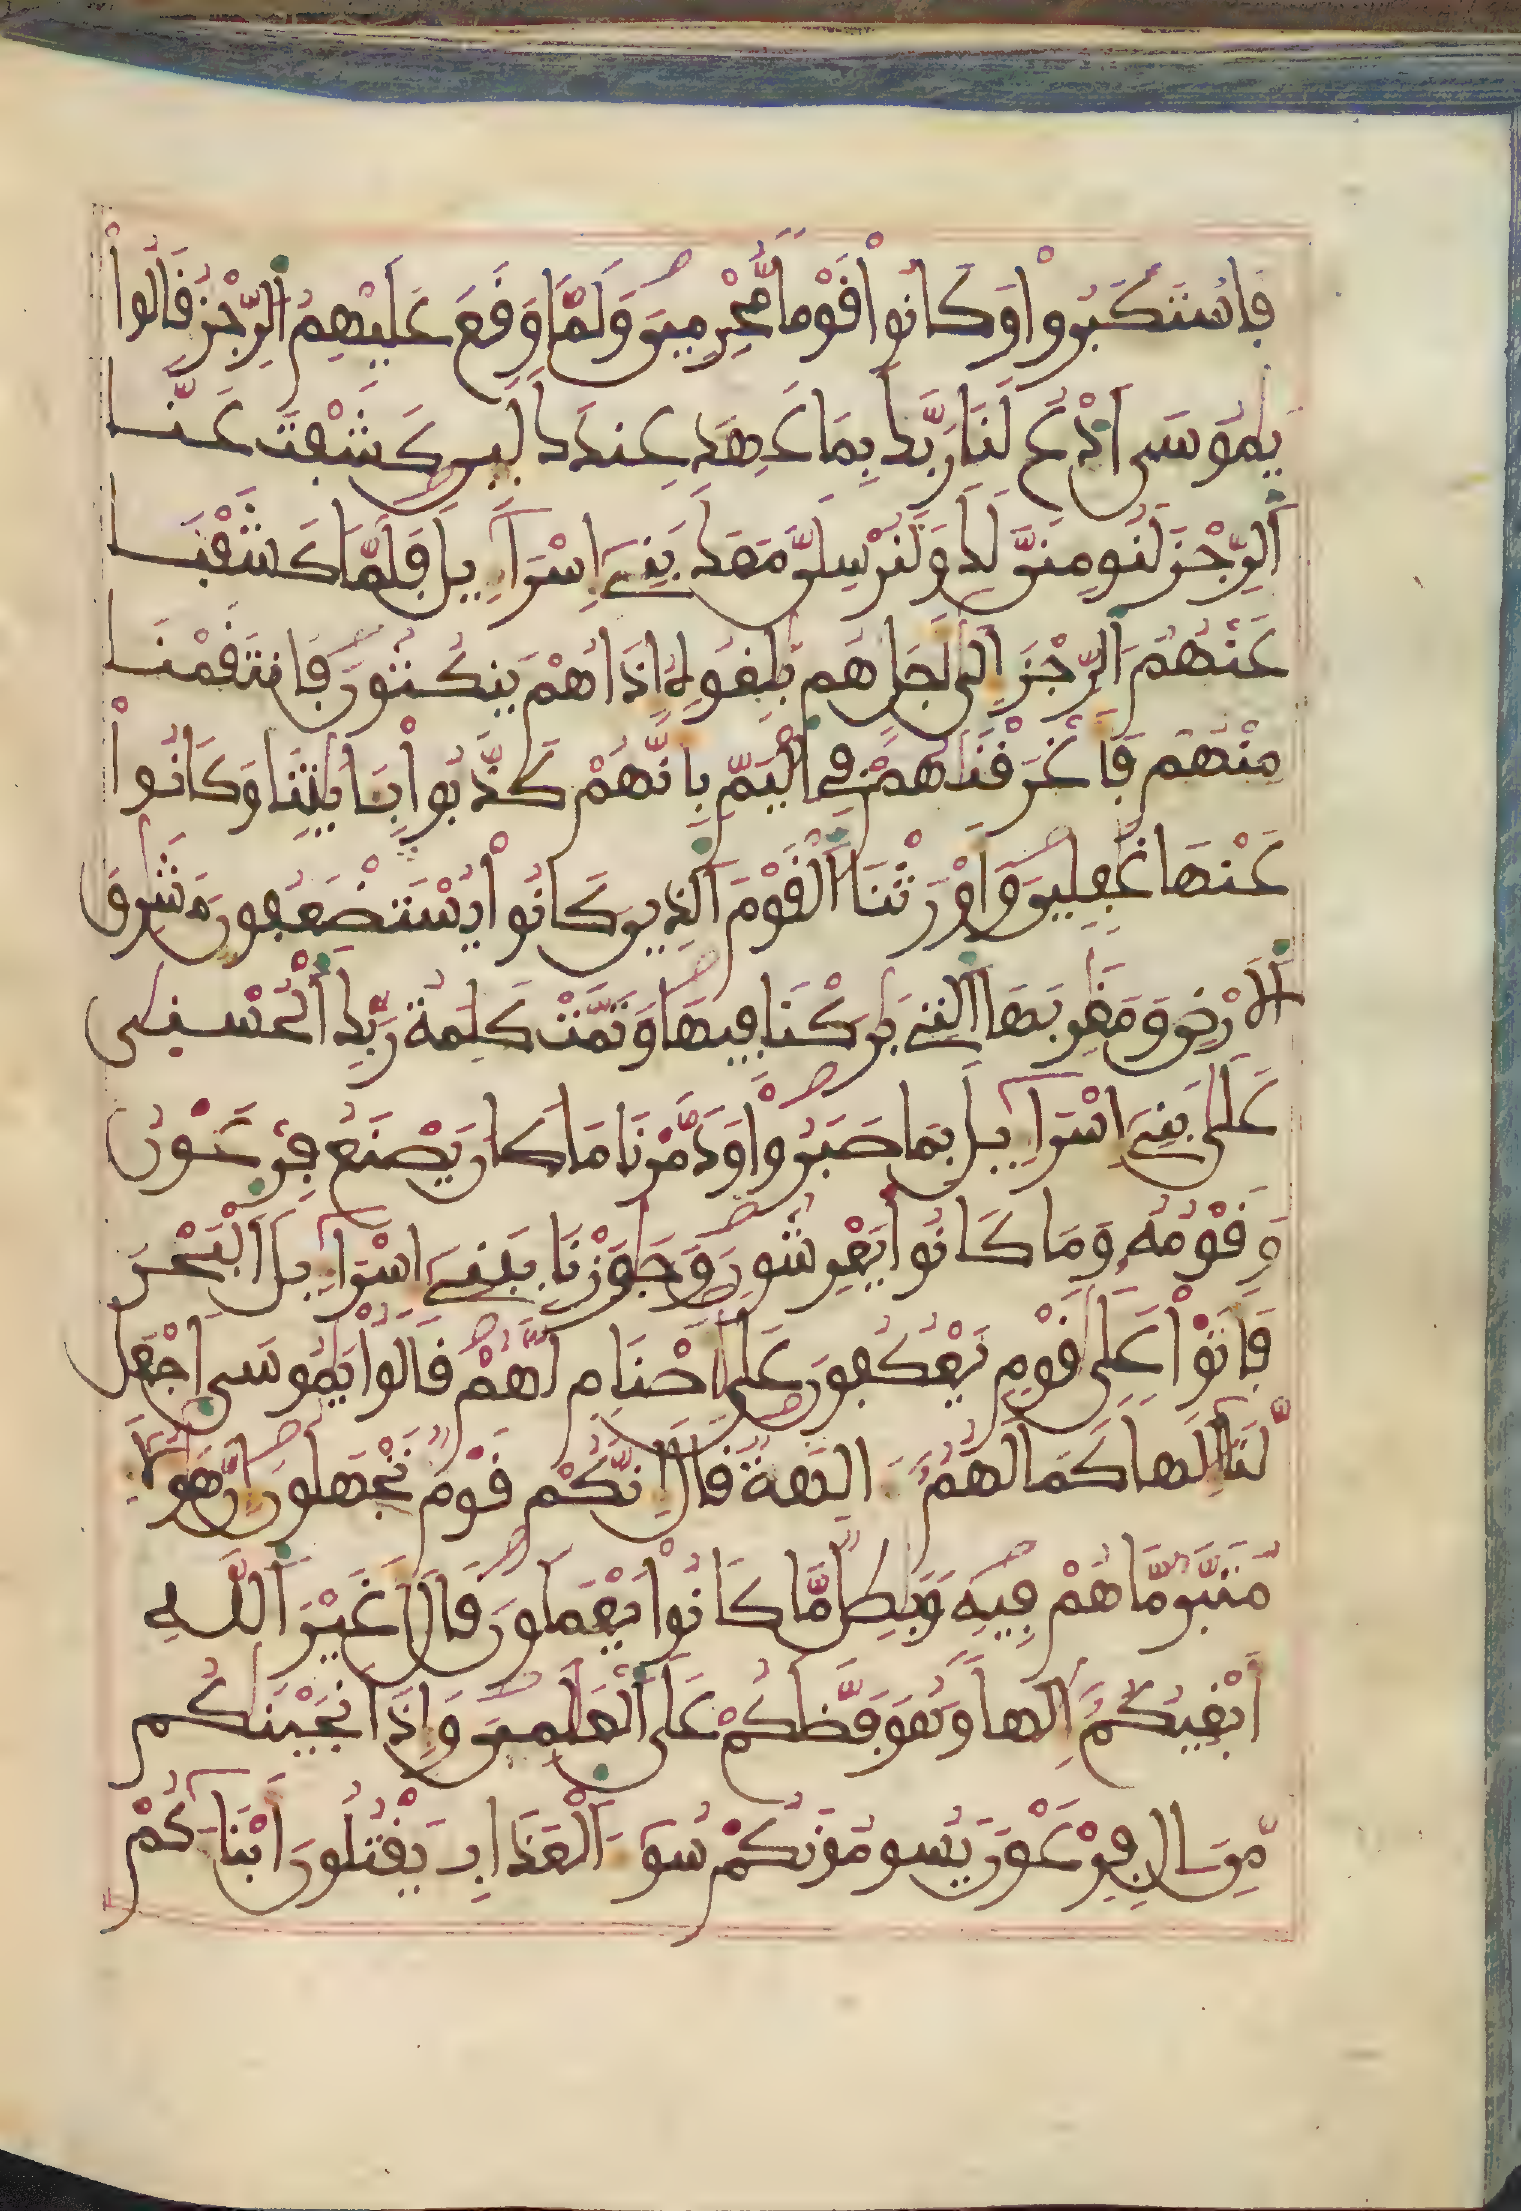 فَاسْتَكْبَرُواْ وَكَانُواْ قَوْماً مُّجْرِمِينَ وَلَمَّا وَقَعَ عَلَيْهِمُ الرِّجْزُ قَالُواْ
يَٰمُوسَى ادْعُ لَنَا رَبَّكَ بِمَا عَهِدَ عِندَكَ لَئِن كَشَفْتَ عَنَّا
الرِّجْزَ لَنُومِنَنَّ لَكَ وَلَنُرْسِلَنَّ مَعَكَ بَنِے إِسْرَآءِيلَ فَلَمَّا كَشَفْنَا
عَنْهُمُ الرِّجْزَ إِلَى أَجَلٍ هُم بَٰلِغُوهُ إِذَا هُمْ يَنكُثُونَ فَانتَقَمْنَا
مِنْهُمْ فَأَغْرَقْنَاهُمْ فِے الْيَمِّ بِأَنَّهُمْ كَذَّبُواْ بِـَٔايَٰتِنَا وَكَانُواْ
عَنْهَا غَٰفِلِينَ وَأَوْرَثْنَا الْقَوْمَ الَّذِينَ كَانُواْ يُسْتَضْعَفُونَ مَشَٰرِقَ
الَارْضِ وَمَغَٰرِبَهَا الَّتِے بَٰرَكْنَا فِيهَا وَتَمَّتْ كَلِمَةُ رَبِّكَ الْحُسْنَىٰ
عَلَىٰ بَنِے إِسْرَآءِيلَ بِمَا صَبَرُواْ وَدَمَّرْنَا مَا كَانَ يَصْنَعُ فِرْعَوْنُ
وَقَوْمُهُ وَمَا كَانُواْ يَعْرِشُونَ وَجَٰوَزْنَا بِبَنِے إِسْرَآءِيلَ الْبَحْرَ
فَأَتَوْاْ عَلَىٰ قَوْمٍ يَعْكُفُونَ عَلَىٰ أَصْنَامٍ لَّهُمْ قَالُواْ يَٰمُوسَى اجْعَل
لَّنَا إِلَٰهاً كَمَا لَهُمُ ءَالِهَةٌ قَالَ إِنَّكُمْ قَوْمٌ تَجْهَلُونَ إِنَّ هَٰؤُلَآءِ
مُتَبَّرٌ مَّا هُمْ فِيهِ وَبَٰطِلٌ مَّا كَانُواْ يَعْمَلُونَ قَالَ أَغَيْرَ اللَّهِ
أَبْغِيكُمُ إِلَٰهاً وَهُوَ فَضَّلَكُمْ عَلَى الْعَٰلَمِينَ وَإِذَ انجَيْنَٰكُم
مِّنَ ـَالِ فِرْعَوْنَ يَسُومُونَكُمْ سُوٓءَ الْعَذَابِ يَقْتُلُونَ أَبْنَآءَكُمْ